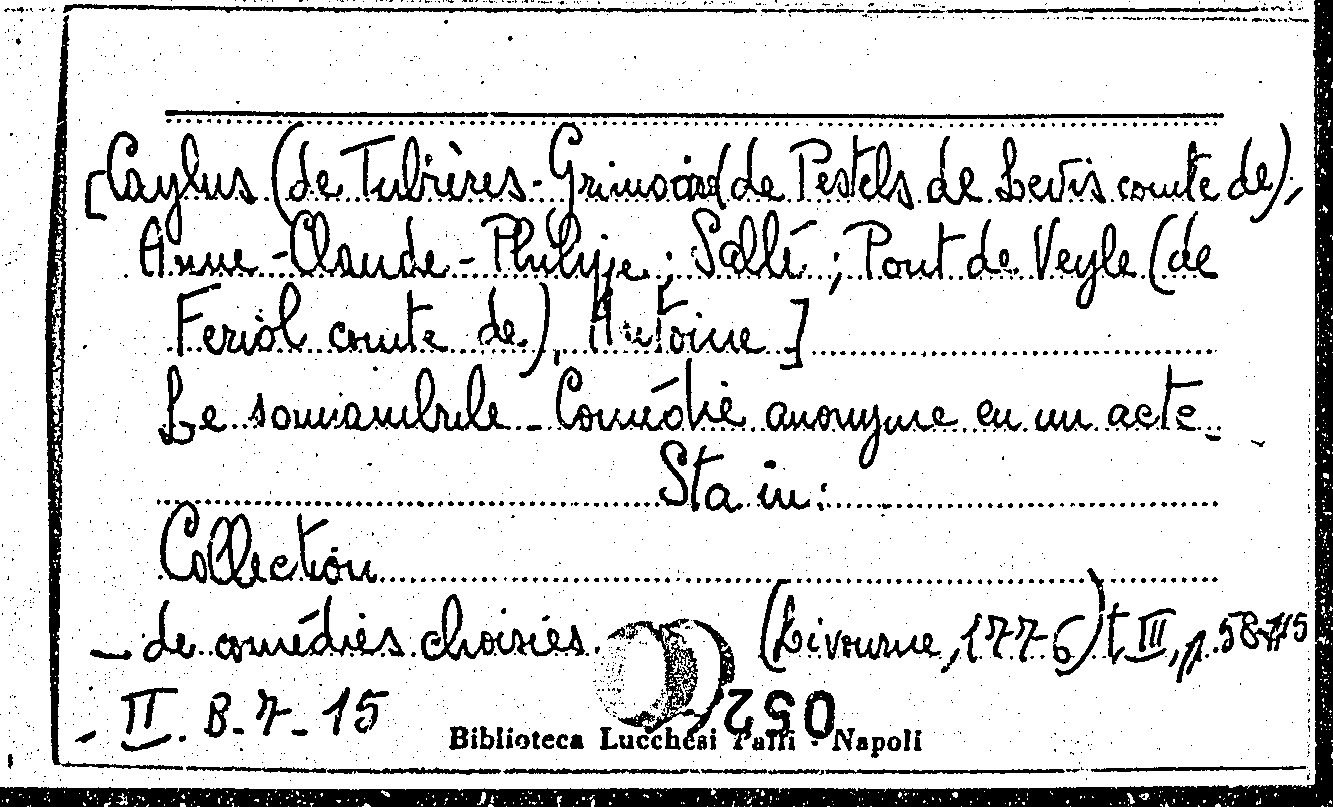 [Caylus (de Tubières-Grimoard de Pestels de Levis comte de),
Anne-Claude-Philippe; Sallé; Pont de Veyle (de
Feriol comte de), Antoine]
Le somnambule - Comédie anonyme en un acte.
Sta in:
Collection
de comédies choisies. (Livourne, 1776) t. III, p.
- II. B-7-15
Biblioteca Lucchesi Palli - Napoli